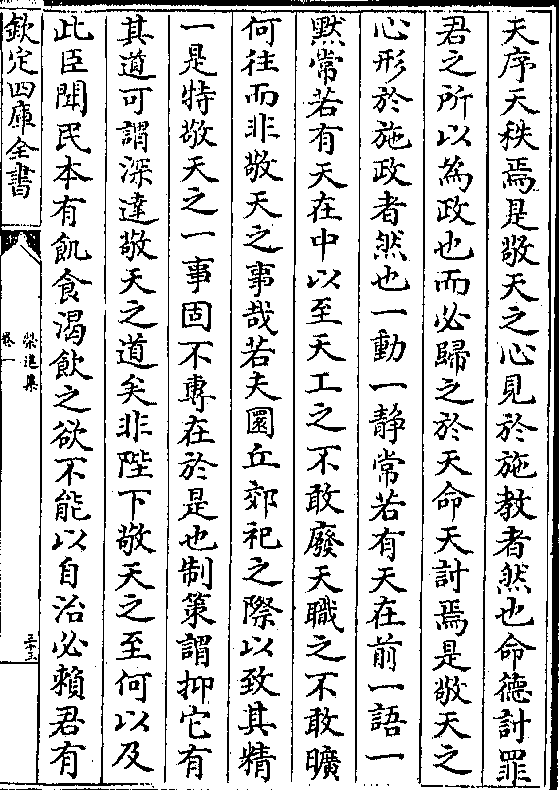 天序天秩焉是敬天之心見於施教者然也命德討罪
君之所以為政也而必歸之於天命天討焉是敬天之
心形於施政者然也一動一靜常若有天在前一語一
默常若有天在中以至天工之不敢廢天職之不敢曠
何往而非敬天之事哉若夫圜丘郊祀之際以致其精
一是特敬天之一事固不專在於是也制策謂抑它有
其道可謂深達敬天之道矣非陛下敬天之至何以及
此臣聞民本有飢食渴飲之欲不能以自治必賴君有
欽定四庫全書
榮進集
卷一
三十三